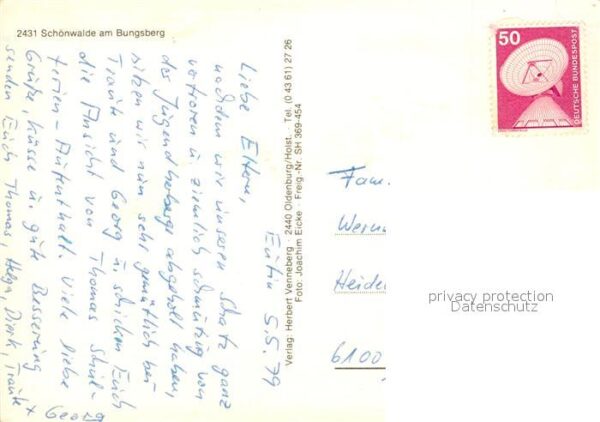 2431 Schönwalde am Bungsberg
Eutin 5.5.79
Liebe Eltern,
nachdem wir unseren Schatz ganz
verfroren u. ziemlich schmutzig von
der Jugendherberge abgeholt haben,
sitzen wir nun sehr gemütlich bei
Traute und Georg u. schicken Euch
die Ansicht von Thomas Schul-
ferien-Aufenthalt. Viele liebe
Grüße, Küsse u. gute Besserung
senden Euch Thomas, Helga, Dierk, Traute +
Georg
Verlag Herbert Venneberg · 2440 Oldenburg/Holst. · Tel. (0 43 61) 27 26
Foto: Joachim Eicke · Freig.-Nr. SH 369-454
50
DEUTSCHE BUNDESPOST
Fam.
Wern
Heide
6100
privacy protection
Datenschutz